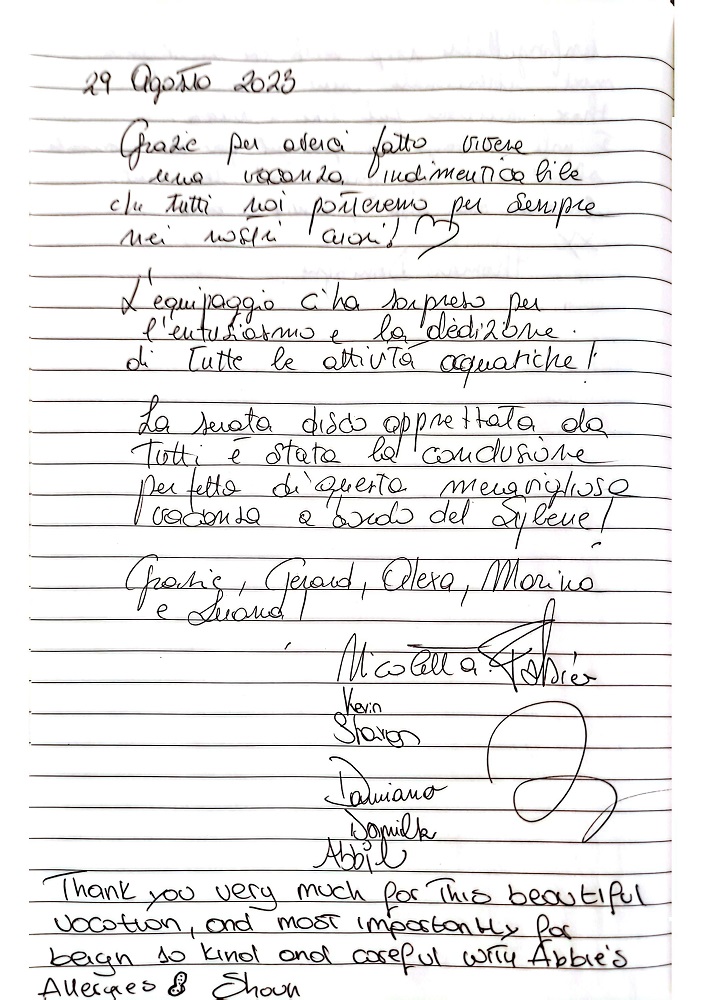 29 Agosto 2023
Grazie per averci fatto vivere
una vacanza indimenticabile
che tutti noi porteremo per sempre
nei nostri cuori! ♡
L'equipaggio ci ha sorpreso per
l'entusiasmo e la dedizione
di tutte le attività acquatiche!
La serata disco apprettata da
Tutti è stata la conclusione
perfetta di questa meravigliosa
vacanza a bordo del Sylene!
Grazie, Gerard, Alexa, Marina
e Luana!
Nicoletta Fabier
Kevin
Sharon
Damiano
Abbie
Thank you very much for This beautiful
vocation, and most importantly for
beign so kind and careful with Abbie's
Allergies & Shaun